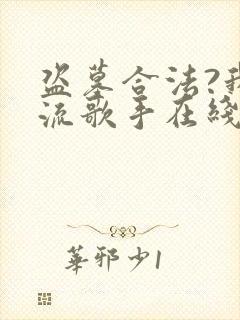 盗墓合法?我
流歌手在綫
華邪少1